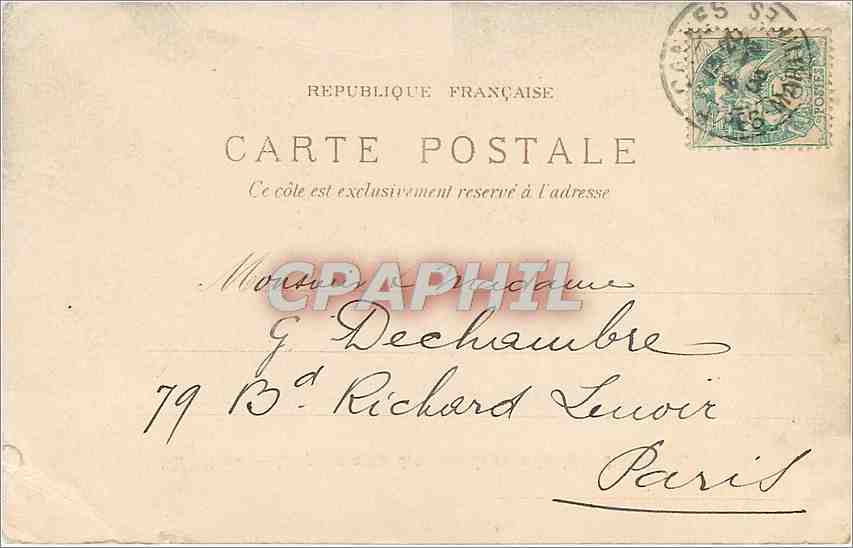 REPUBLIQUE FRANÇAISE
CARTE POSTALE
Ce côte est exclusivement reservé à l'adresse
Monsieur & Madame
CPAPHIL
G. Dechambre
79 Bd. Richard Lenoir
Paris
CANNES
POSTES